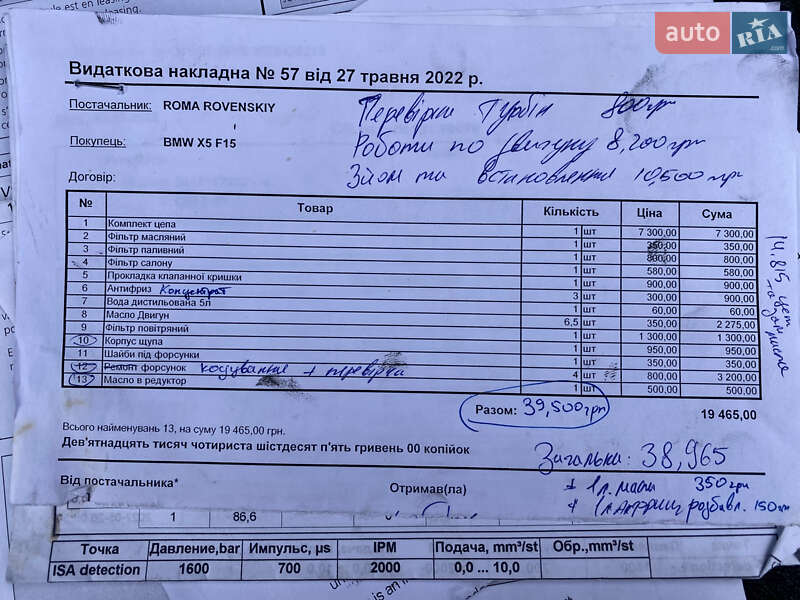 auto RIA
Видаткова накладна № 57 від 27 травня 2022 р.
Постачальник: ROMA ROVENSKIY
Перевірка Турбін 800грн
Покупець: BMW X5 F15
Роботи по двигуну 8,200грн
Договір:
Зйом та встановлення 10,500грн
№ Товар Кількість Ціна Сума
1 Комплект цепа 1 шт 7 300,00 7 300,00
2 Фільтр масляний 1 шт 350,00 350,00
3 Фільтр паливний 1 шт 800,00 800,00
4 Фільтр салону 1 шт 580,00 580,00
5 Прокладка клапанної кришки 1 шт 900,00 900,00
6 Антифриз Концентрат 3 шт 300,00 900,00
7 Вода дистильована 5л 1 шт 60,00 60,00
8 Масло Двигун 6,5 шт 350,00 2 275,00
9 Фільтр повітряний 1 шт 1 300,00 1 300,00
10 Корпус щупа 1 шт 950,00 950,00
11 Шайби під форсунки 1 шт 350,00 350,00
12 Ремонт форсунок кодування + перевірка 4 шт 800,00 3 200,00
13 Масло в редуктор 1 шт 500,00 500,00
14.815
Разом: 39,500грн 19 465,00
Всього найменувань 13, на суму 19 465,00 грн.
Дев'ятнадцять тисяч чотириста шістдесят п'ять гривень 00 копійок
Загальна: 38,965
Від постачальника* Отримав(ла)
+ 1л. масла 350грн
+ 1л Антифриз розбавл. 150грн
1 86,6
Точка Давление,bar Импульс, µs IPM Подача, mm³/st Обр.,mm³/st
ISA detection 1600 700 2000 0,0 ... 10,0